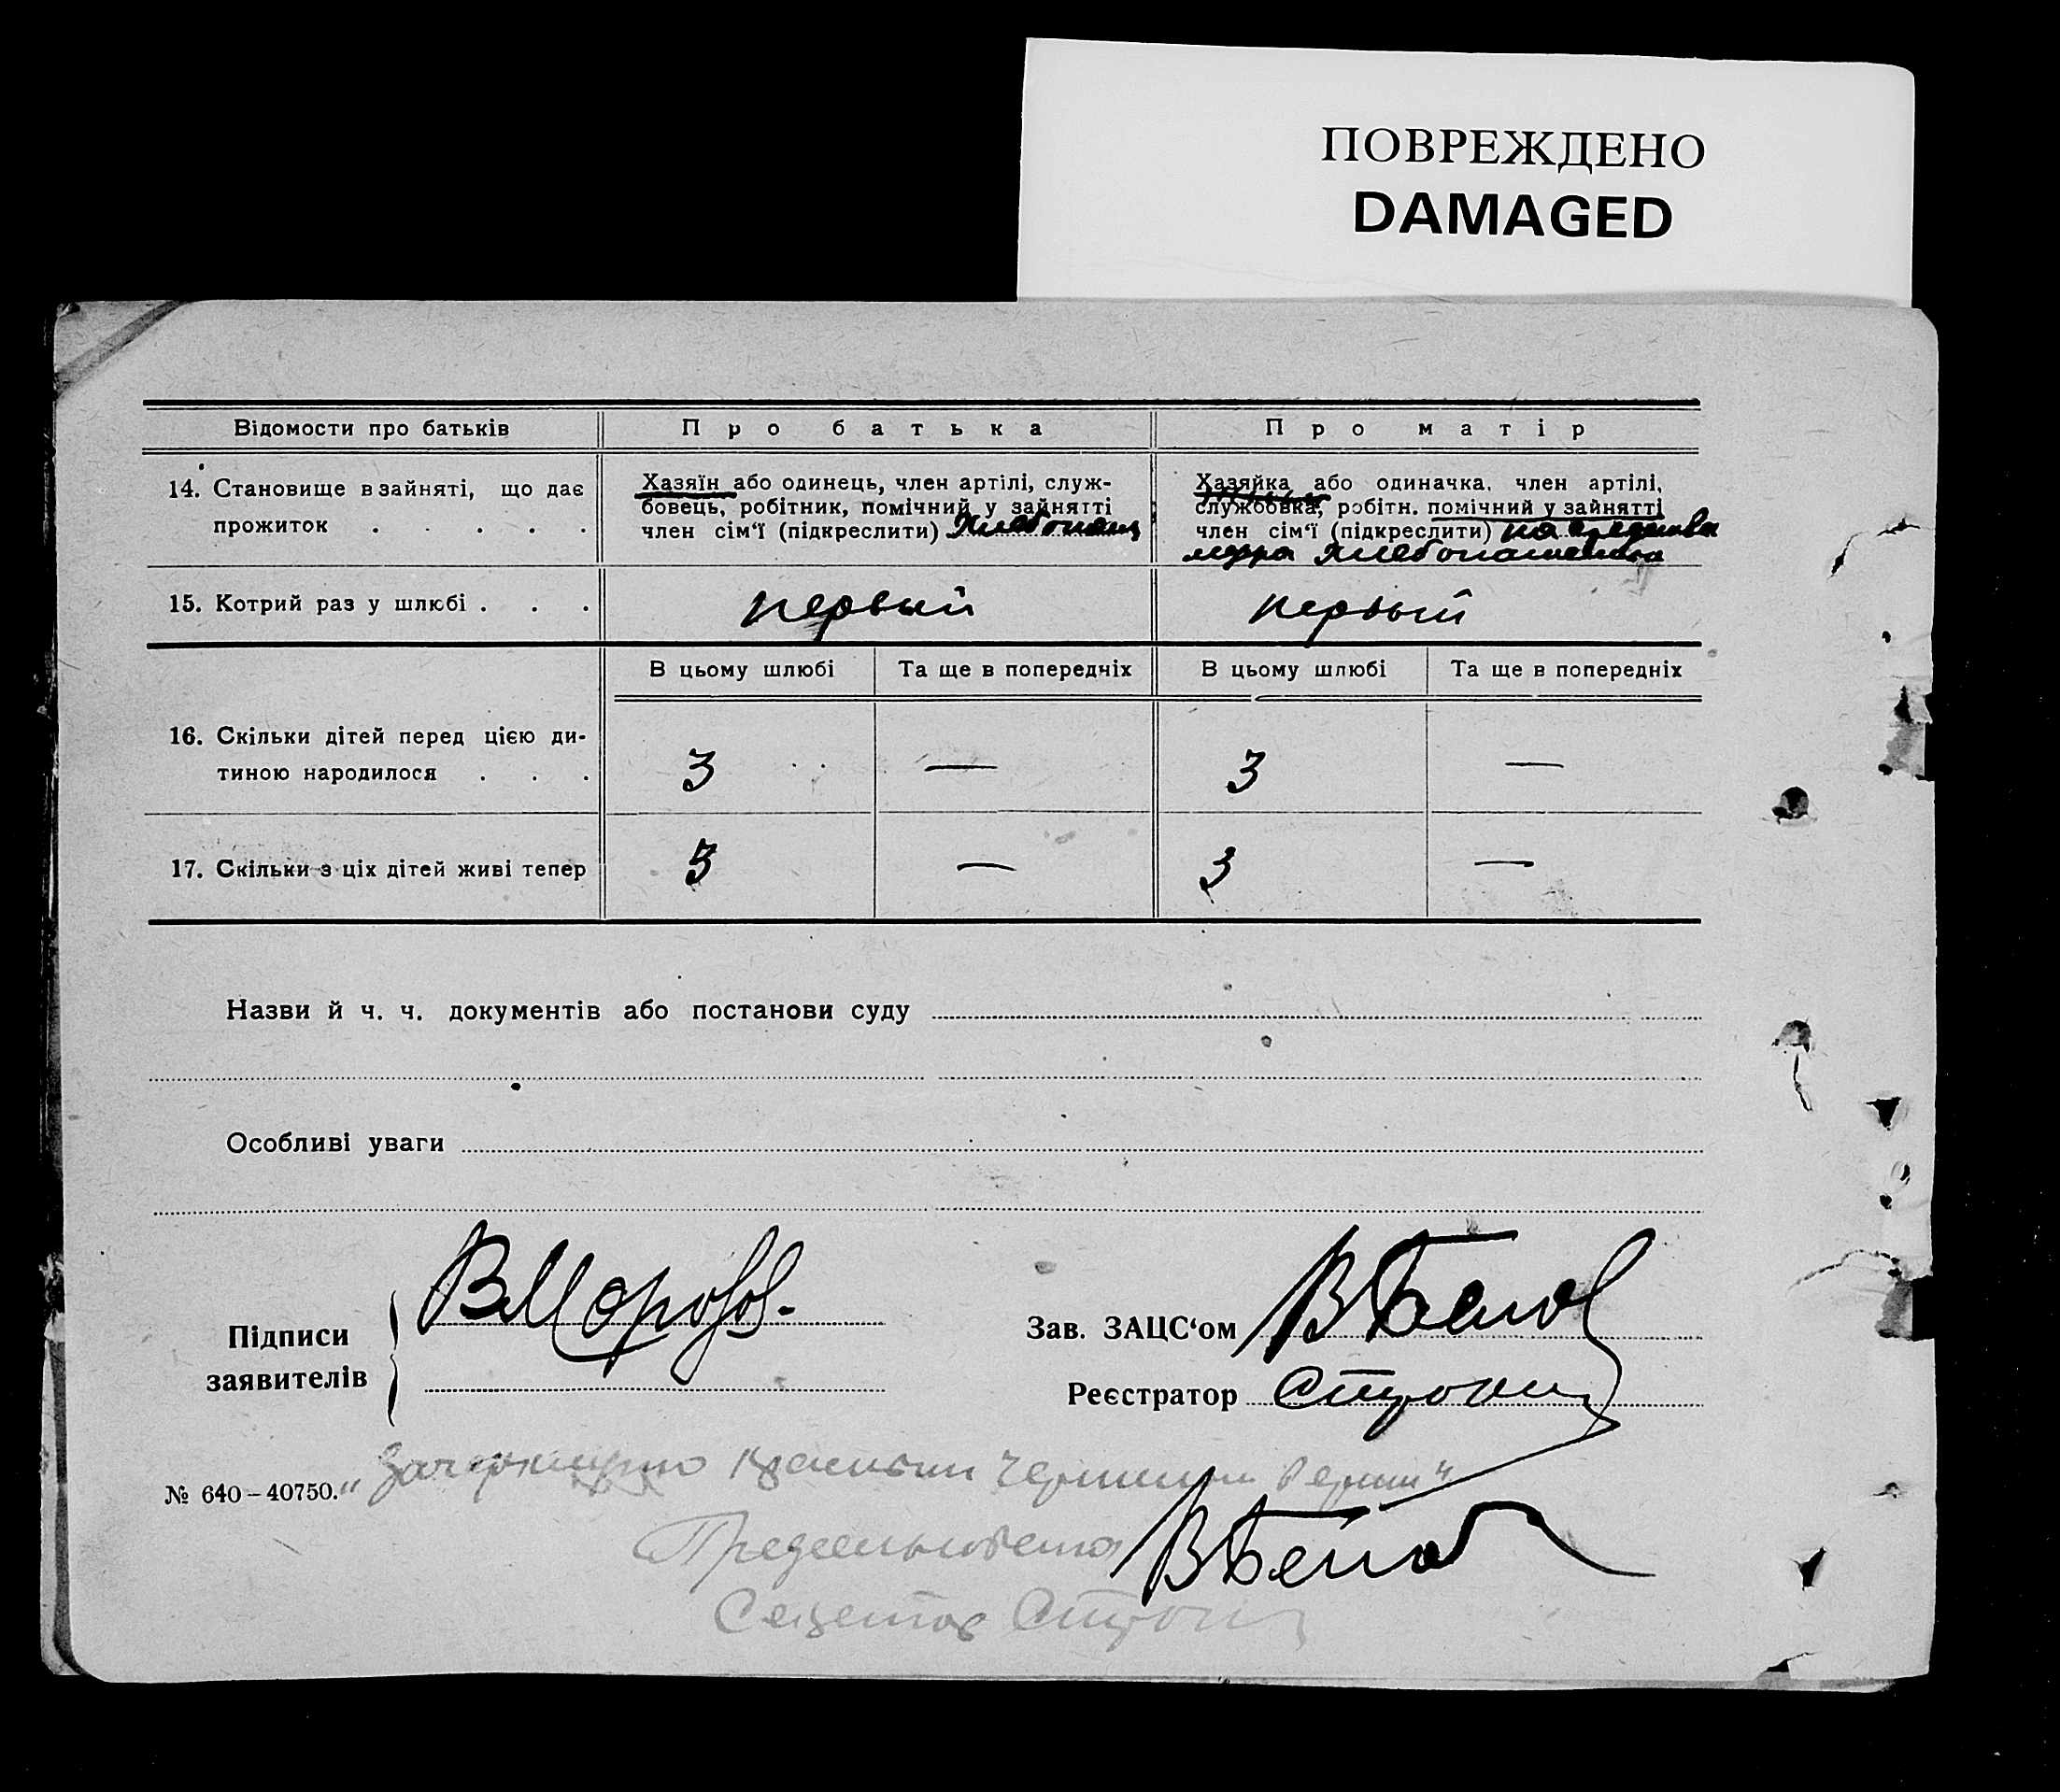 ПОВРЕЖДЕНО
DAMAGED
Відомости про батьків
Про батька
Про матір
14. Становище в зайняті, що дає
прожиток . . . . .
Хазяїн або одинець, член артілі, служ-
бовець, робітник, помічний у зайнятті
член сім'ї (підкреслити) Хлебопашец
Хазяйка або одиначка, член артілі,
службовка, робітн. помічний у зайнятті
член сім'ї (підкреслити) на средства
мужа хлебопашества
15. Котрий раз у шлюбі . . .
первый
первый
В цьому шлюбі
Та ще в попередніх
В цьому шлюбі
Та ще в попередніх
16. Скільки дітей перед цією ди-
тиною народилося . . .
3
—
3
—
17. Скільки з ціх дітей живі тепер
3
—
3
—
Назви й ч. ч. документів або постанови суду
Особливі уваги
Підписи
заявителів
ВМороз.
Зав. ЗАЦС'ом
Реєстратор
№ 640–40750.
"Зачеркнуто красными чернилами верно"